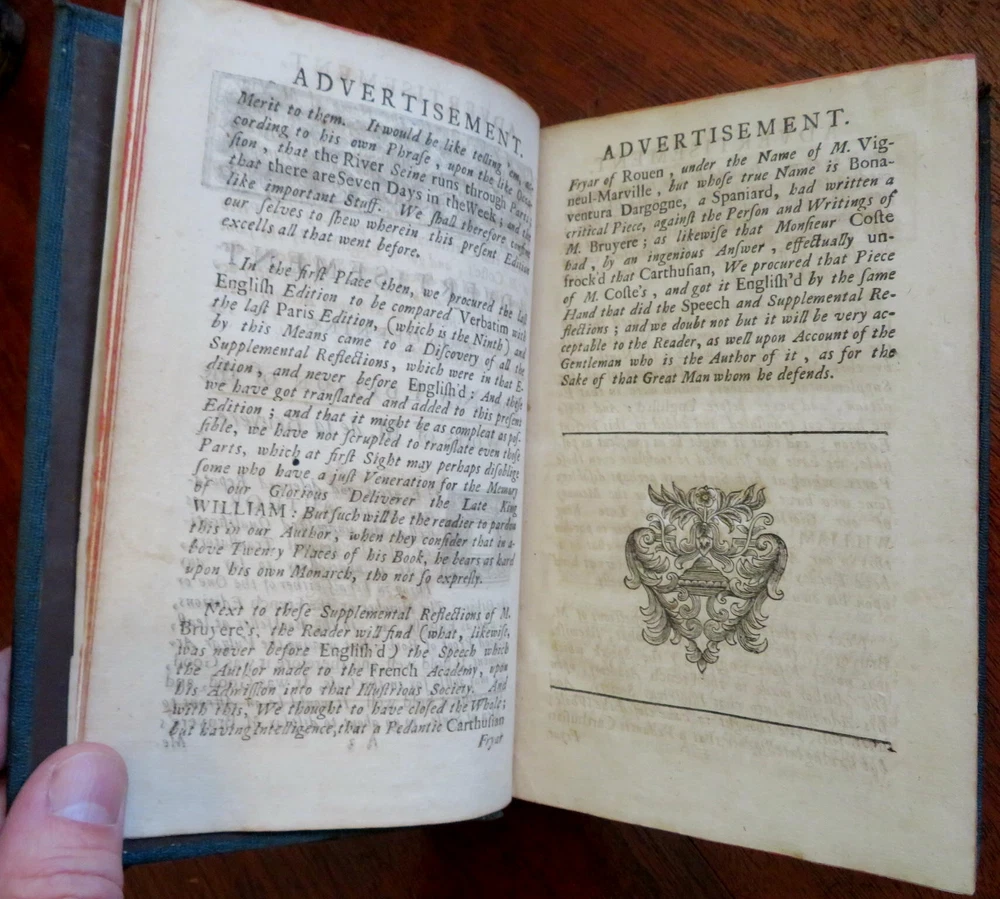 ADVERTISEMENT.
Merit to them. It would be like telling 'em, ac-
cording to his own Phrase, upon the like Occa-
sion, that the River Seine runs through Paris,
that there are Seven Days in the Week, and the
like important Stuff. We shall therefore confine
our selves to shew wherein this present Edition
excells all that went before.
In the first Place then, we procured the last
English Edition to be compared Verbatim with
the last Paris Edition, (which is the Ninth) and
by this Means came to a Discovery of all the
Supplemental Reflections, which were in that E-
dition, and never before English'd: And these
we have got translated and added to this present
Edition; and that it might be as compleat as pos-
sible, we have not scrupled to translate even those
Parts, which at first Sight may perhaps disoblige
some who have a just Veneration for the Memory
of our Glorious Deliverer the Late King
WILLIAM: But such will be the readier to pardon
this in our Author, when they consider that in a-
bove Twenty Places of his Book, he bears as hard
upon his own Monarch, tho not so expresly.
Next to these Supplemental Reflections of M.
Bruyere's, the Reader will find (what, likewise,
was never before English'd) the Speech which
the Author made to the French Academy, upon
his Admission into that Illustrious Society. And
with this, We thought to have closed the Whole;
but having Intelligence, that a Pedantic Carthusian
Fryar
ADVERTISEMENT.
Fryar of Rouen, under the Name of M. Vig-
neul-Marville, but whose true Name is Bona-
ventura Dargogne, a Spaniard, had written a
critical Piece, against the Person and Writings of
M. Bruyere; as likewise that Monsieur Coste
had, by an ingenious Answer, effectually un-
frock'd that Carthusian, We procured that Piece
of M. Coste's, and got it English'd by the same
Hand that did the Speech and Supplemental Re-
flections; and we doubt not but it will be very ac-
ceptable to the Reader, as well upon Account of the
Gentleman who is the Author of it, as for the
Sake of that Great Man whom he defends.